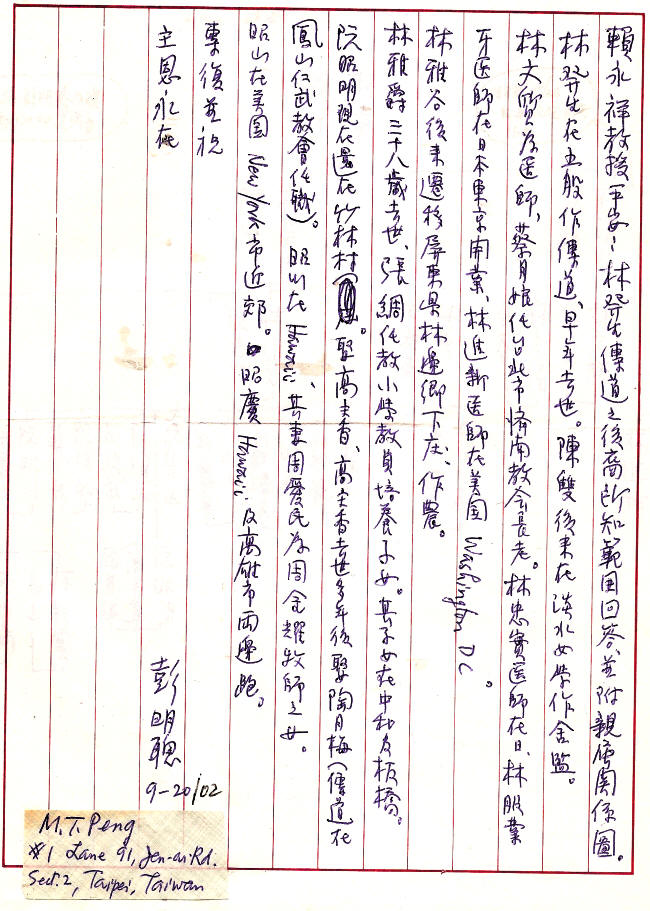 賴永祥教授平安：林發生傳道之後裔所知範囲回答、並附親傳関係圖。
林發生在五股作傳道、早年去世。陳雙後來在淡水女學作舍監。
林文質為医師、蔡月娥任台北市濟南教会長老。林忠實医師在日、林服業
牙医師在日本東京開業、林進新医師在美国 Washington DC。
林雅谷後來遷移屏東县林邊鄉下庄、作農。
林雅爵三十八歲去世、張綢任教小學教員培養子女。其子女在中和及板橋。
阮昭明現在還在竹林村。娶高主香、高主香去世多年後娶陶月梅（傳道在
鳳山仁武教會任職）。 昭川在 Hawaii、其妻周慶民為周金耀牧師之女。
昭山在美国 New York 市近郊。昭廣 Hawaii 及高雄市兩邊跑。
專復並祝
主恩永在
彭明聰
9-20/02
M.T. Peng
※1 Lane 91, Jen-ai Rd.
Sect. 2, Taipei, Taiwan